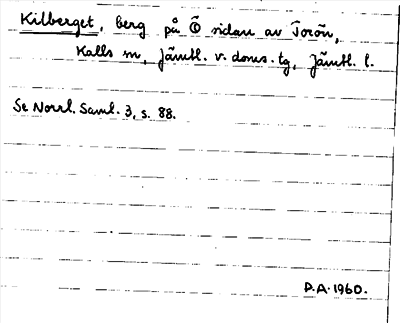 Kilberget, berg på Ö sidan av Torön,
Kalls sn, Jämtl. v. doms. tg, Jämtl. l.
Se Norrl. Saml. 3, s. 88.
P.A. 1960.